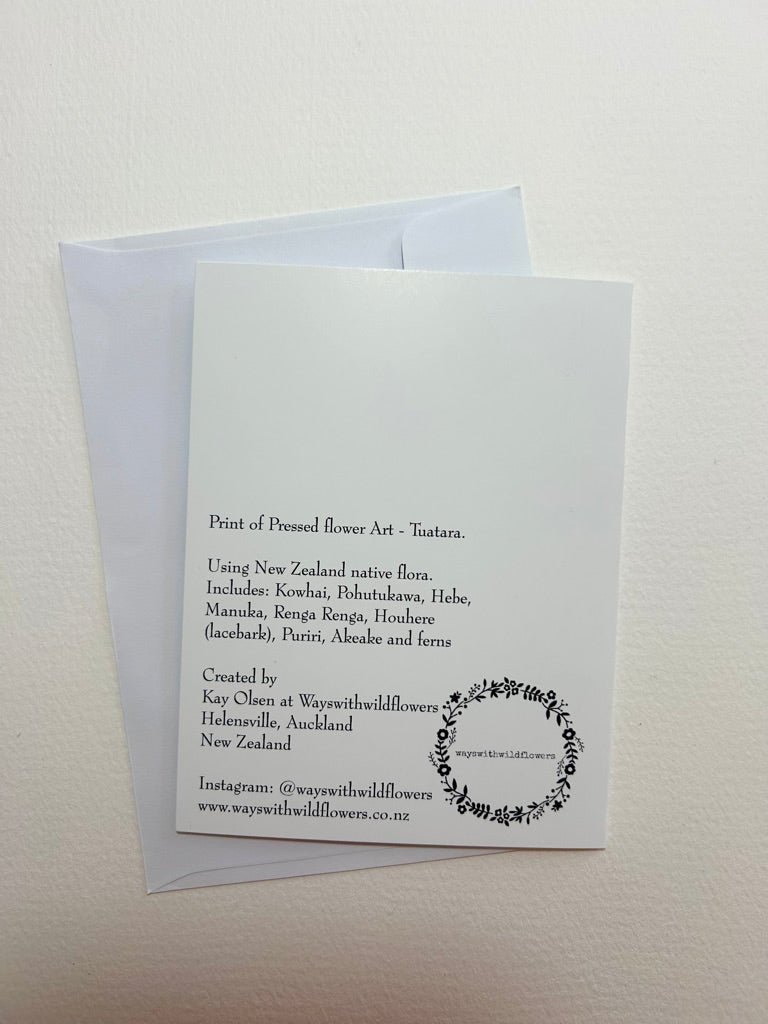 Print of Pressed flower Art - Tuatara.
Using New Zealand native flora.
Includes: Kowhai, Pohutukawa, Hebe,
Manuka, Renga Renga, Houhere
(lacebark), Puriri, Akeake and ferns
Created by
Kay Olsen at Wayswithwildflowers
Helensville, Auckland
New Zealand
wayswithwildflowers
Instagram: @wayswithwildflowers
www.wayswithwildflowers.co.nz